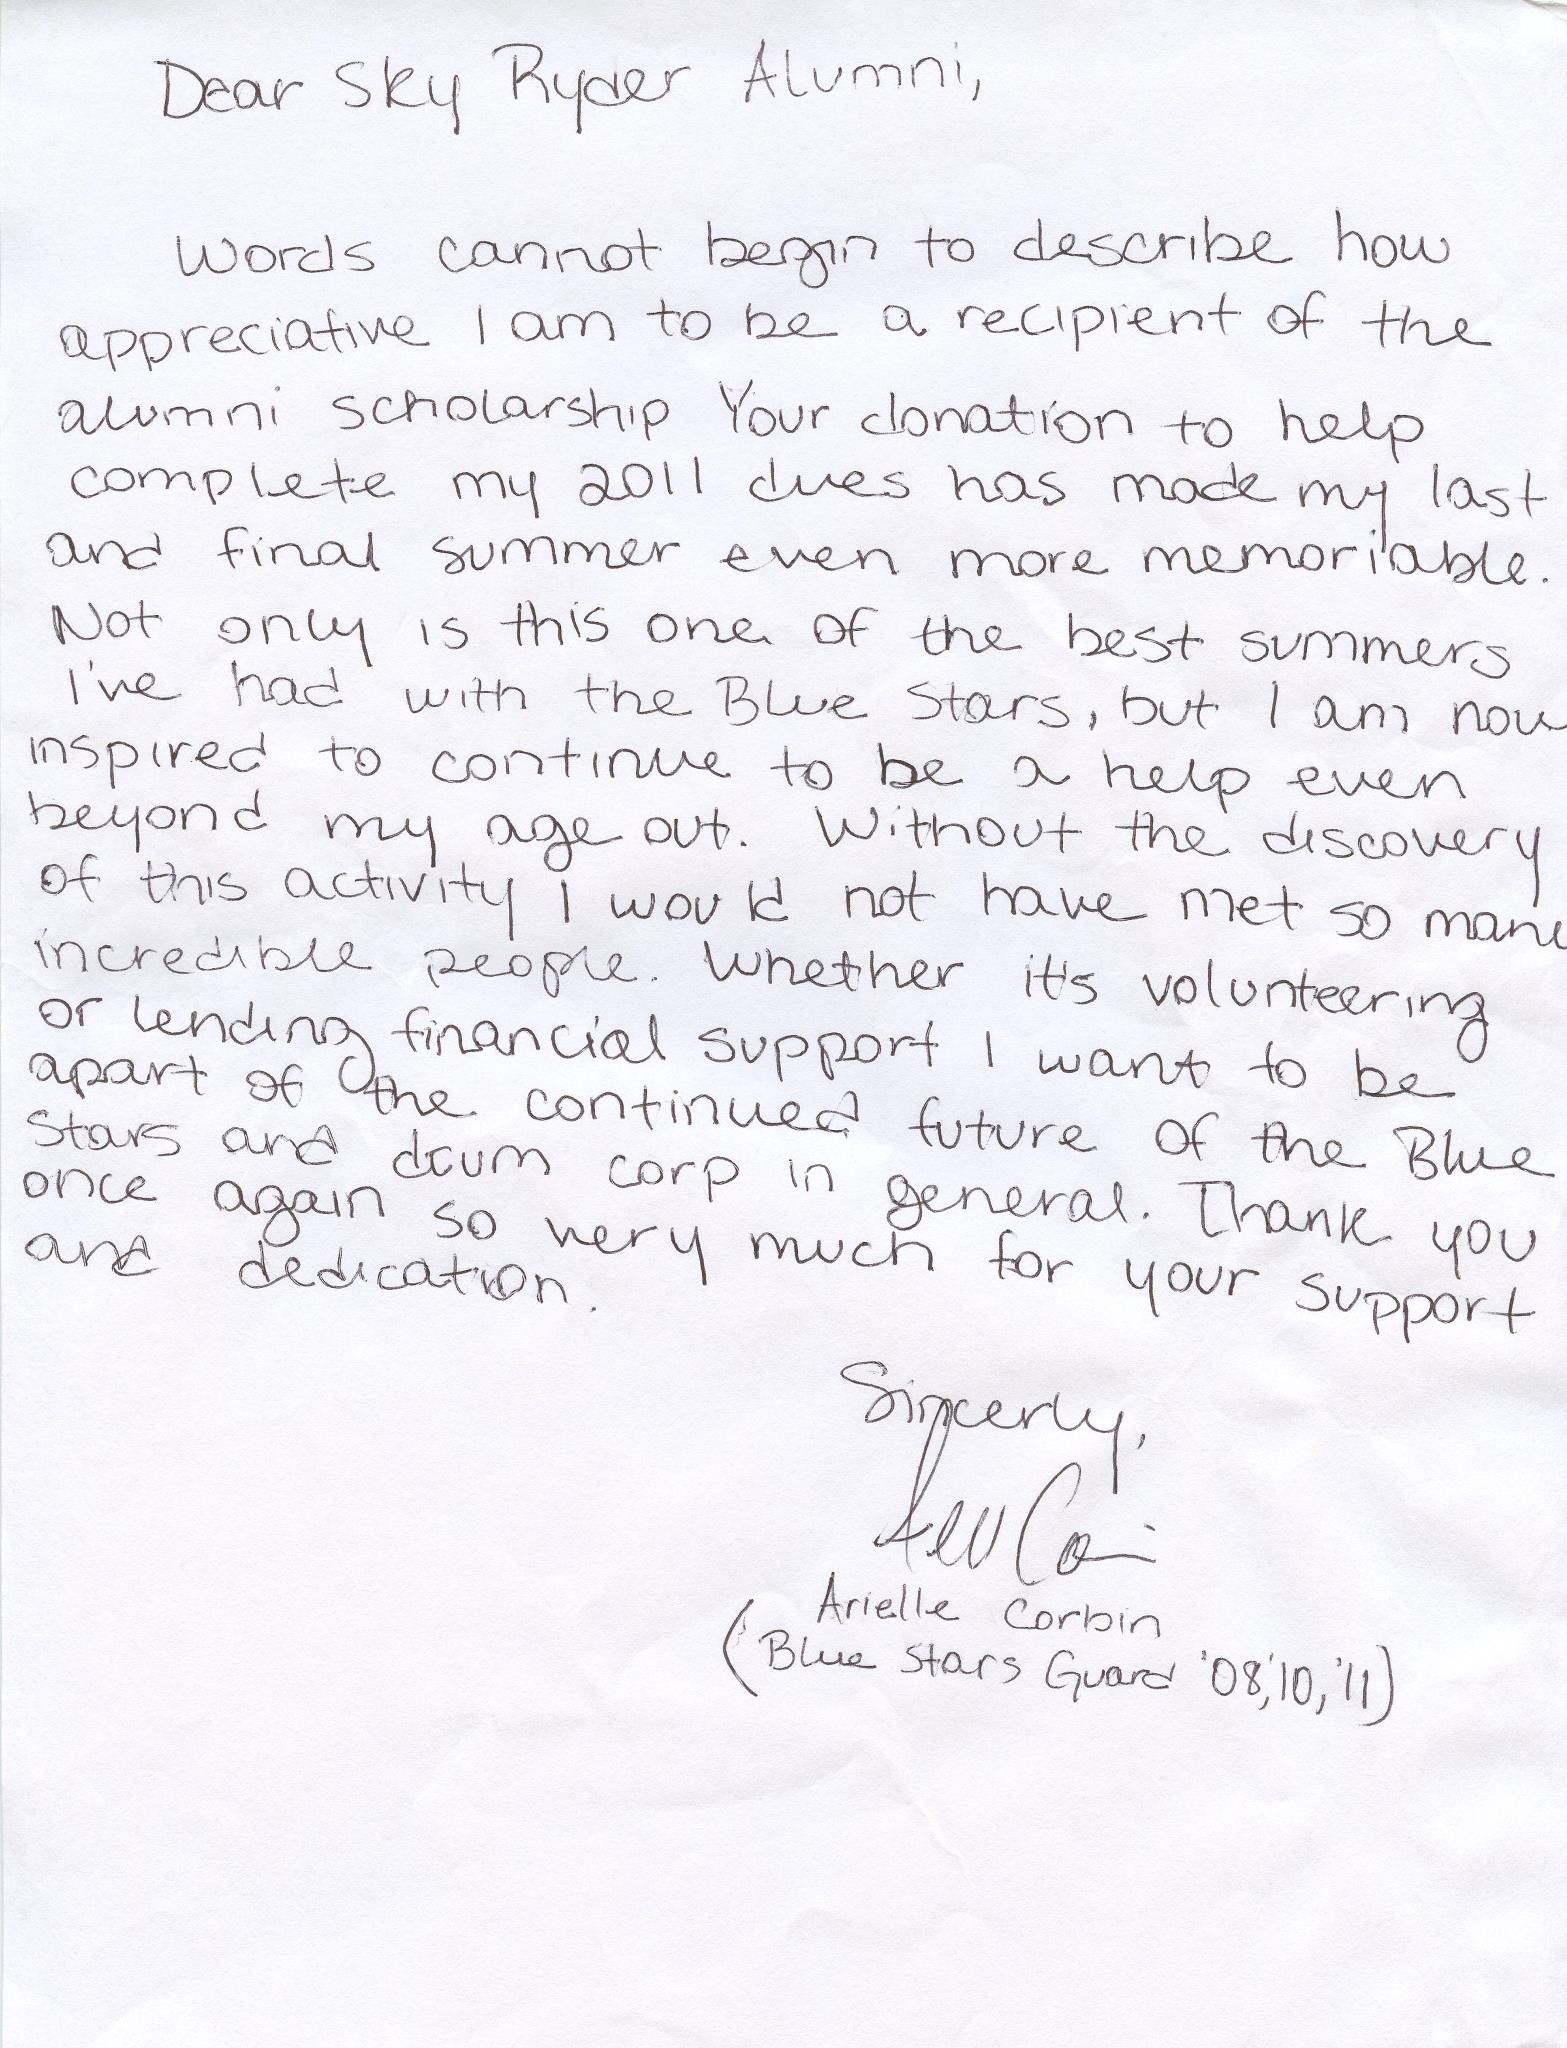 Dear Sky Ryder Alumni,
Words cannot begin to describe how
appreciative I am to be a recipient of the
alumni scholarship Your donation to help
complete my 2011 dues has made my last
and final summer even more memoriable.
Not only is this one of the best summers
I've had with the Blue Stars, but I am now
inspired to continue to be a help even
beyond my age out. Without the discovery
of this activity I would not have met so many
incredible people. Whether it's volunteering
or lending financial support I want to be
apart of the continued future of the Blue
Stars and drum corp in general. Thank you
once again so very much for your support
and dedication.
Sincerly,
Arielle Corbin
(Blue Stars Guard '08,'10,'11)